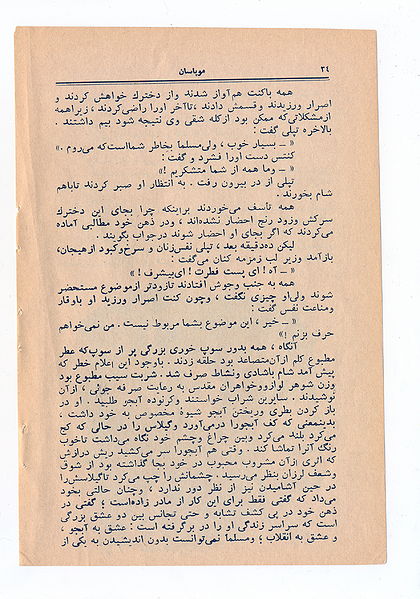 ۲۴
موپاسان
همه باکنت هم‌آواز شدند واز دخترك خواهش کردند و
اصرار ورزیدند وقسمش دادند ، تاآخر اورا راضی‌کردند ، زیراهمه
ازمشکلاتی‌که ممکن بود ازکله شقی وی نتیجه شود بیم داشتند .
بالاخره تپلی گفت :
« ــ بسیار خوب ، ولی‌مسلما بخاطر شمااست‌که می‌روم . »
کنتس دست اورا فشرد و گفت :
« ــ وما همه از شما متشکریم !»
تپلی از در بیرون رفت . به انتظار او صبر کردند تاباهم
شام بخورند .
همه تأسف می‌خوردند براینکه چرا بجای این دخترك
سرکش وزود رنج احضار نشده‌اند ، ودر ذهن خود مطالبی آماده
می‌کردند که اگر بجای او احضار شوند در جواب بگویند .
لیکن ده‌دقیقه بعد ، تپلی نفس‌زنان و سرخ‌وکبود ازهیجان،
بازآمد وزیر لب زمزمه کنان می‌گفت :
« ــ آه ! ای پست فطرت ! ای‌بیشرف ! »
همه به جنب وجوش افتادند تازودتر ازموضوع مستحضر
شوند ولی‌او چیزی نگفت ، وچون کنت اصرار ورزید او باوقار
ومناعت نفس گفت :
« ــ خیر ، این موضوع بشما مربوط نیست . من نمی‌خواهم
حرف بزنم !»
آنگاه ، همه بدور سوپ خوری بزرگی پر از سوپ‌که عطر
مطبوع کلم ازآن‌متصاعد بود حلقه زدند . باوجود این‌اعلام خطر که
پیش آمد شام باشادی ونشاط صرف شد . شربت سیب مطبوع بود
وزن شوهر لوازووخواهران مقدس به رعایت صرفه جوئی ، ازآن
نوشیدند . سایرین شراب خواستند وکرنوده آبجو طلبید . او در
باز کردن بطری وریختن آبجو شیوهٔ مخصوص به خود داشت ،
بدینمعنی که کف آبجورا درمی‌آورد وگیلاس را در حالی که کج
می‌کرد بلند می‌کرد وبین چراغ وچشم خود نگاه می‌داشت تاخوب
رنگ آنرا تماشا کند . وقتی هم آبجورا سر می‌کشید ریش درازش
که اثری ازآن مشروب محبوب در خود بجا گذاشته بود از شوق
وشعف لرزان بنظر می‌رسید . چشمانش را چپ می‌کرد تاگیلاسش‌را
در حین آشامیدن نیز از نظر دور ندارد ، وچنان حالتی بخود
می‌داد که گفتی فقط برای این کار از مادر زاده‌است ؛ گفتی در
ذهن خود در پی کشف تشابه و حتی تجانس بین دو عشق بزرگی
است که سراسر زندگی او را در برگرفته است : عشق به آبجو ،
و عشق به انقلاب ؛ ومسلما نمی‌توانست بدون اندیشیدن به یکی از